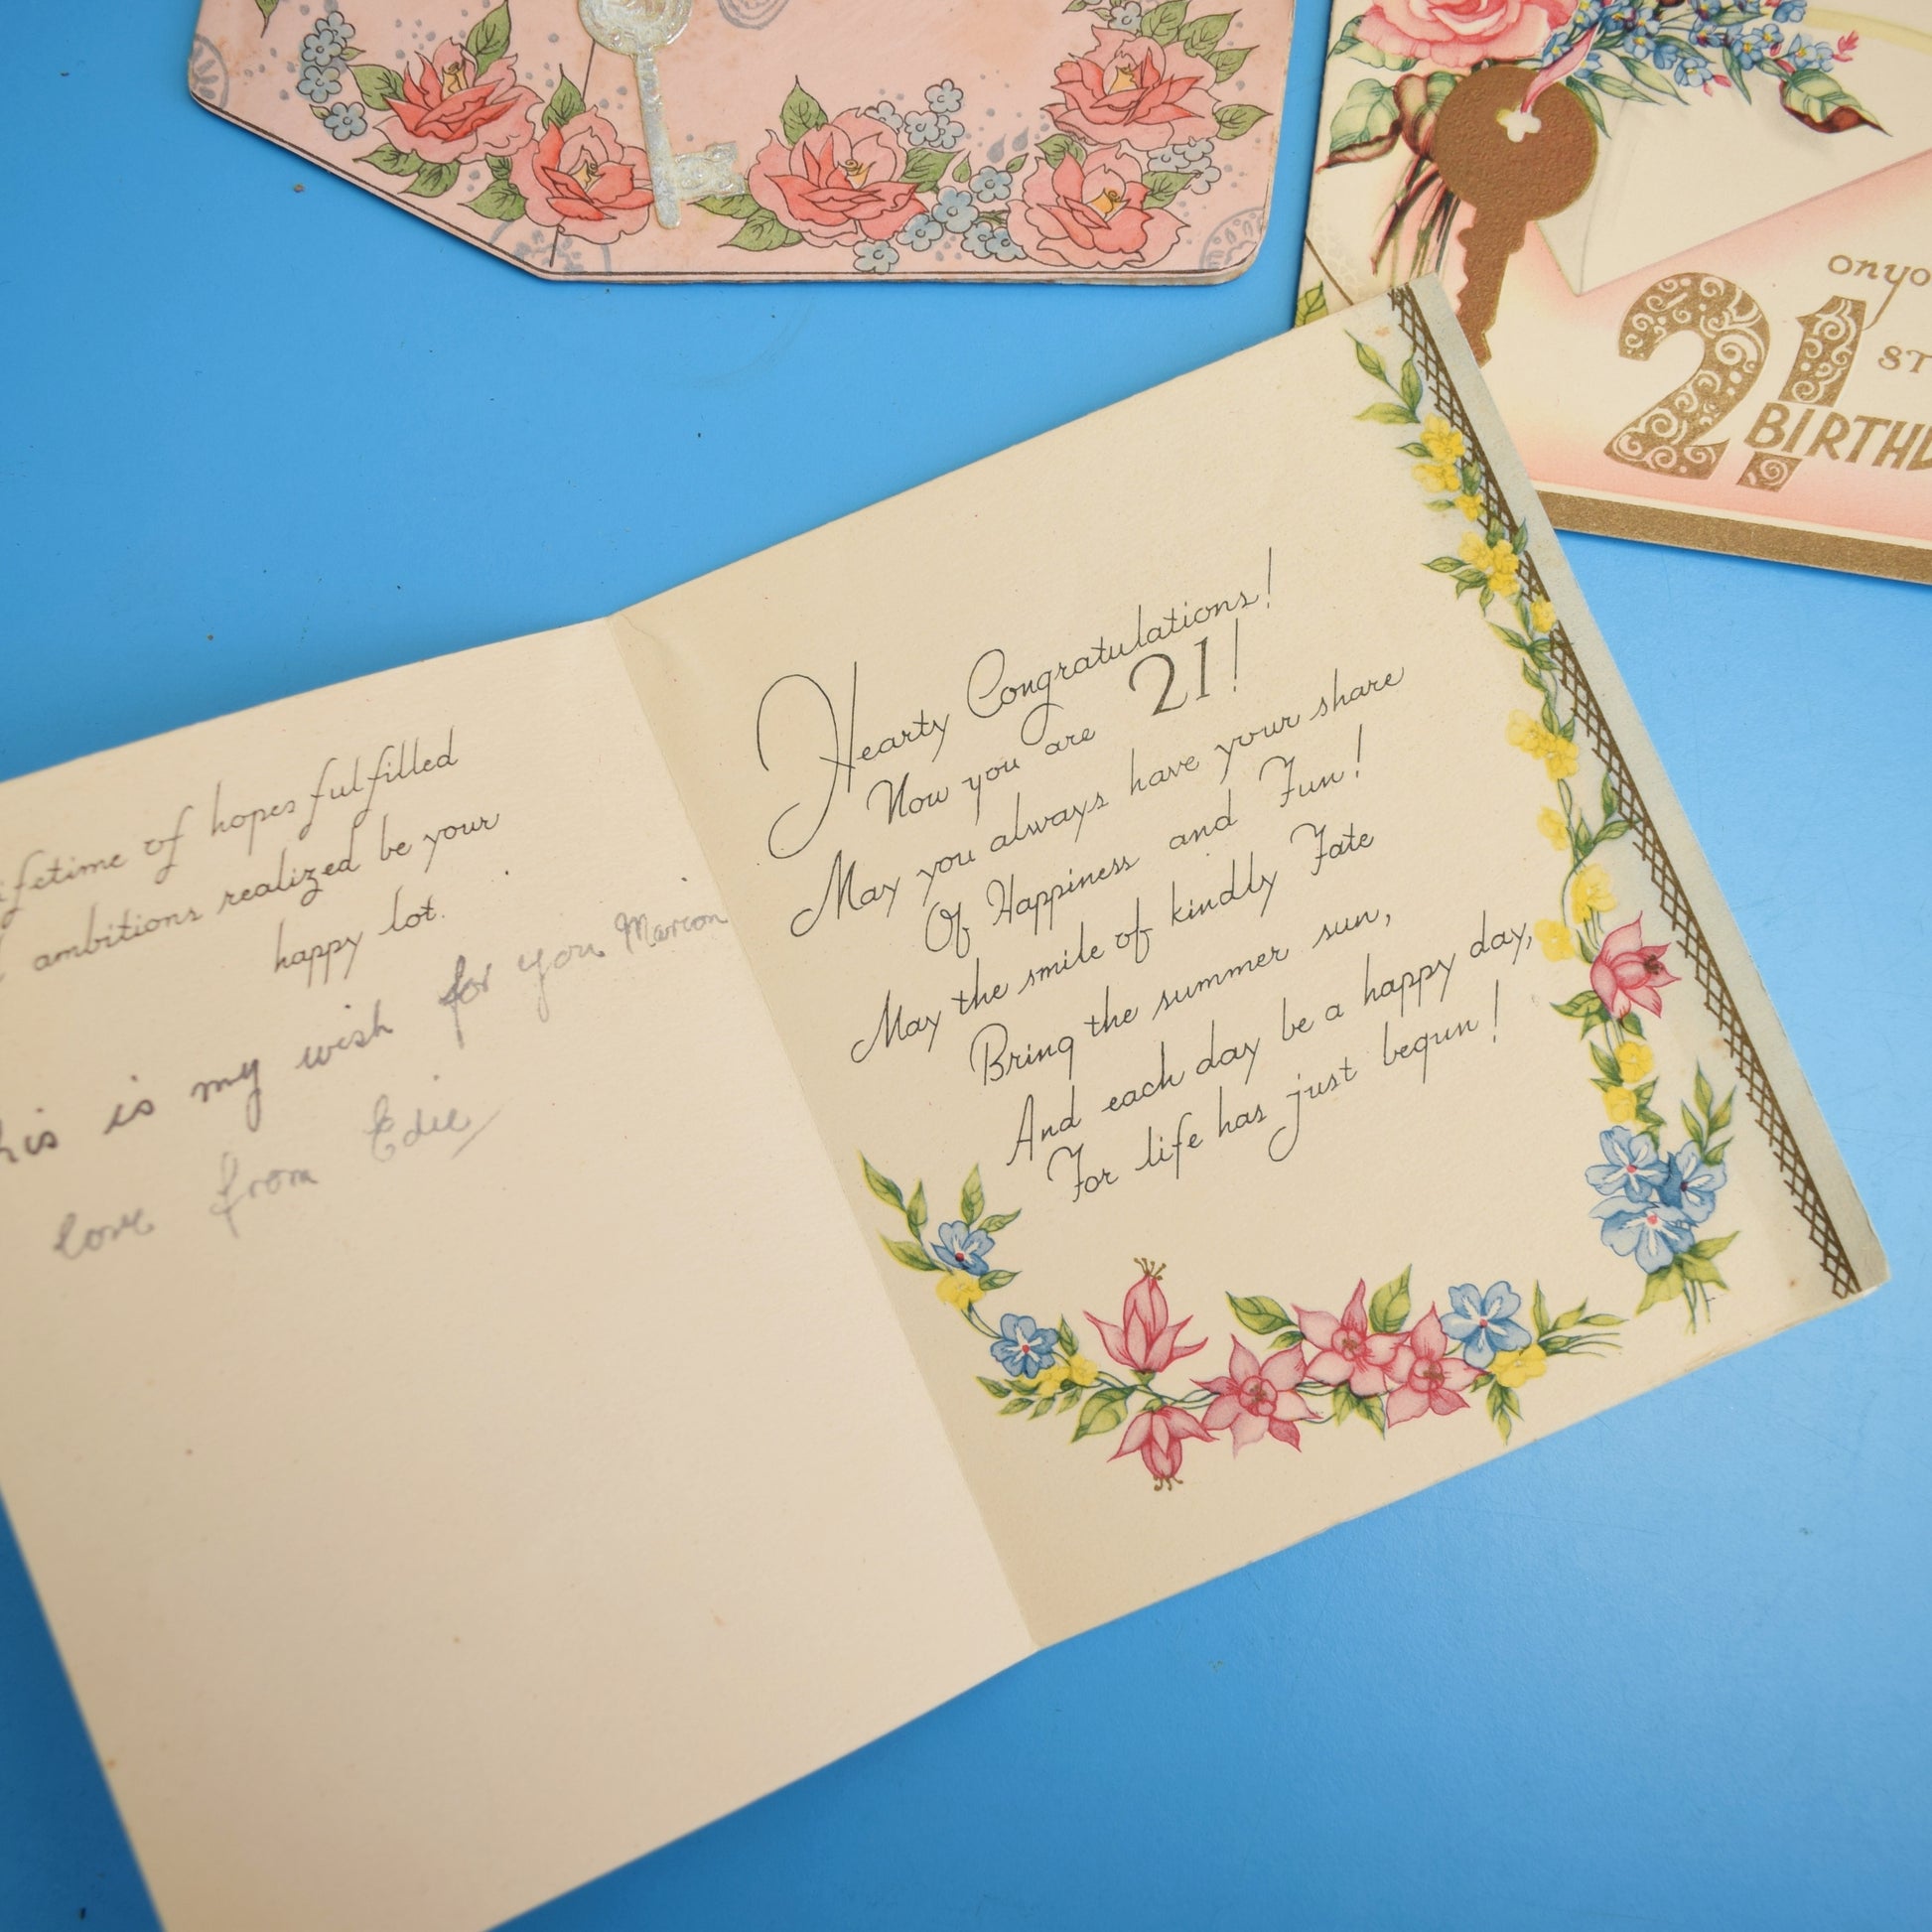 onyo
21 ST
BIRTHD
ifetime of hopes fulfilled
ambitions realized be your
happy lot.
his is my wish for you Marion
love from Edie
Hearty Congratulations!
Now you are 21!
May you always have your share
Of Happiness and Fun!
May the smile of kindly Fate
Bring the summer sun,
And each day be a happy day,
For life has just begun!